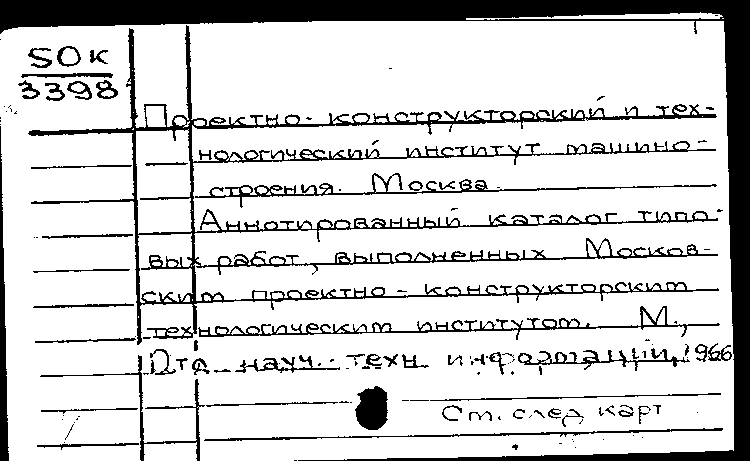 50к
3398
Проектно-конструкторский и тех-
нологический институт машино-
строения. Москва.
Аннотированный каталог типо-
вых работ, выполненных Москов-
ским проектно-конструкторским
технологическим институтом. М.,
Отд. науч.-техн. информации, 1966
См. след карт